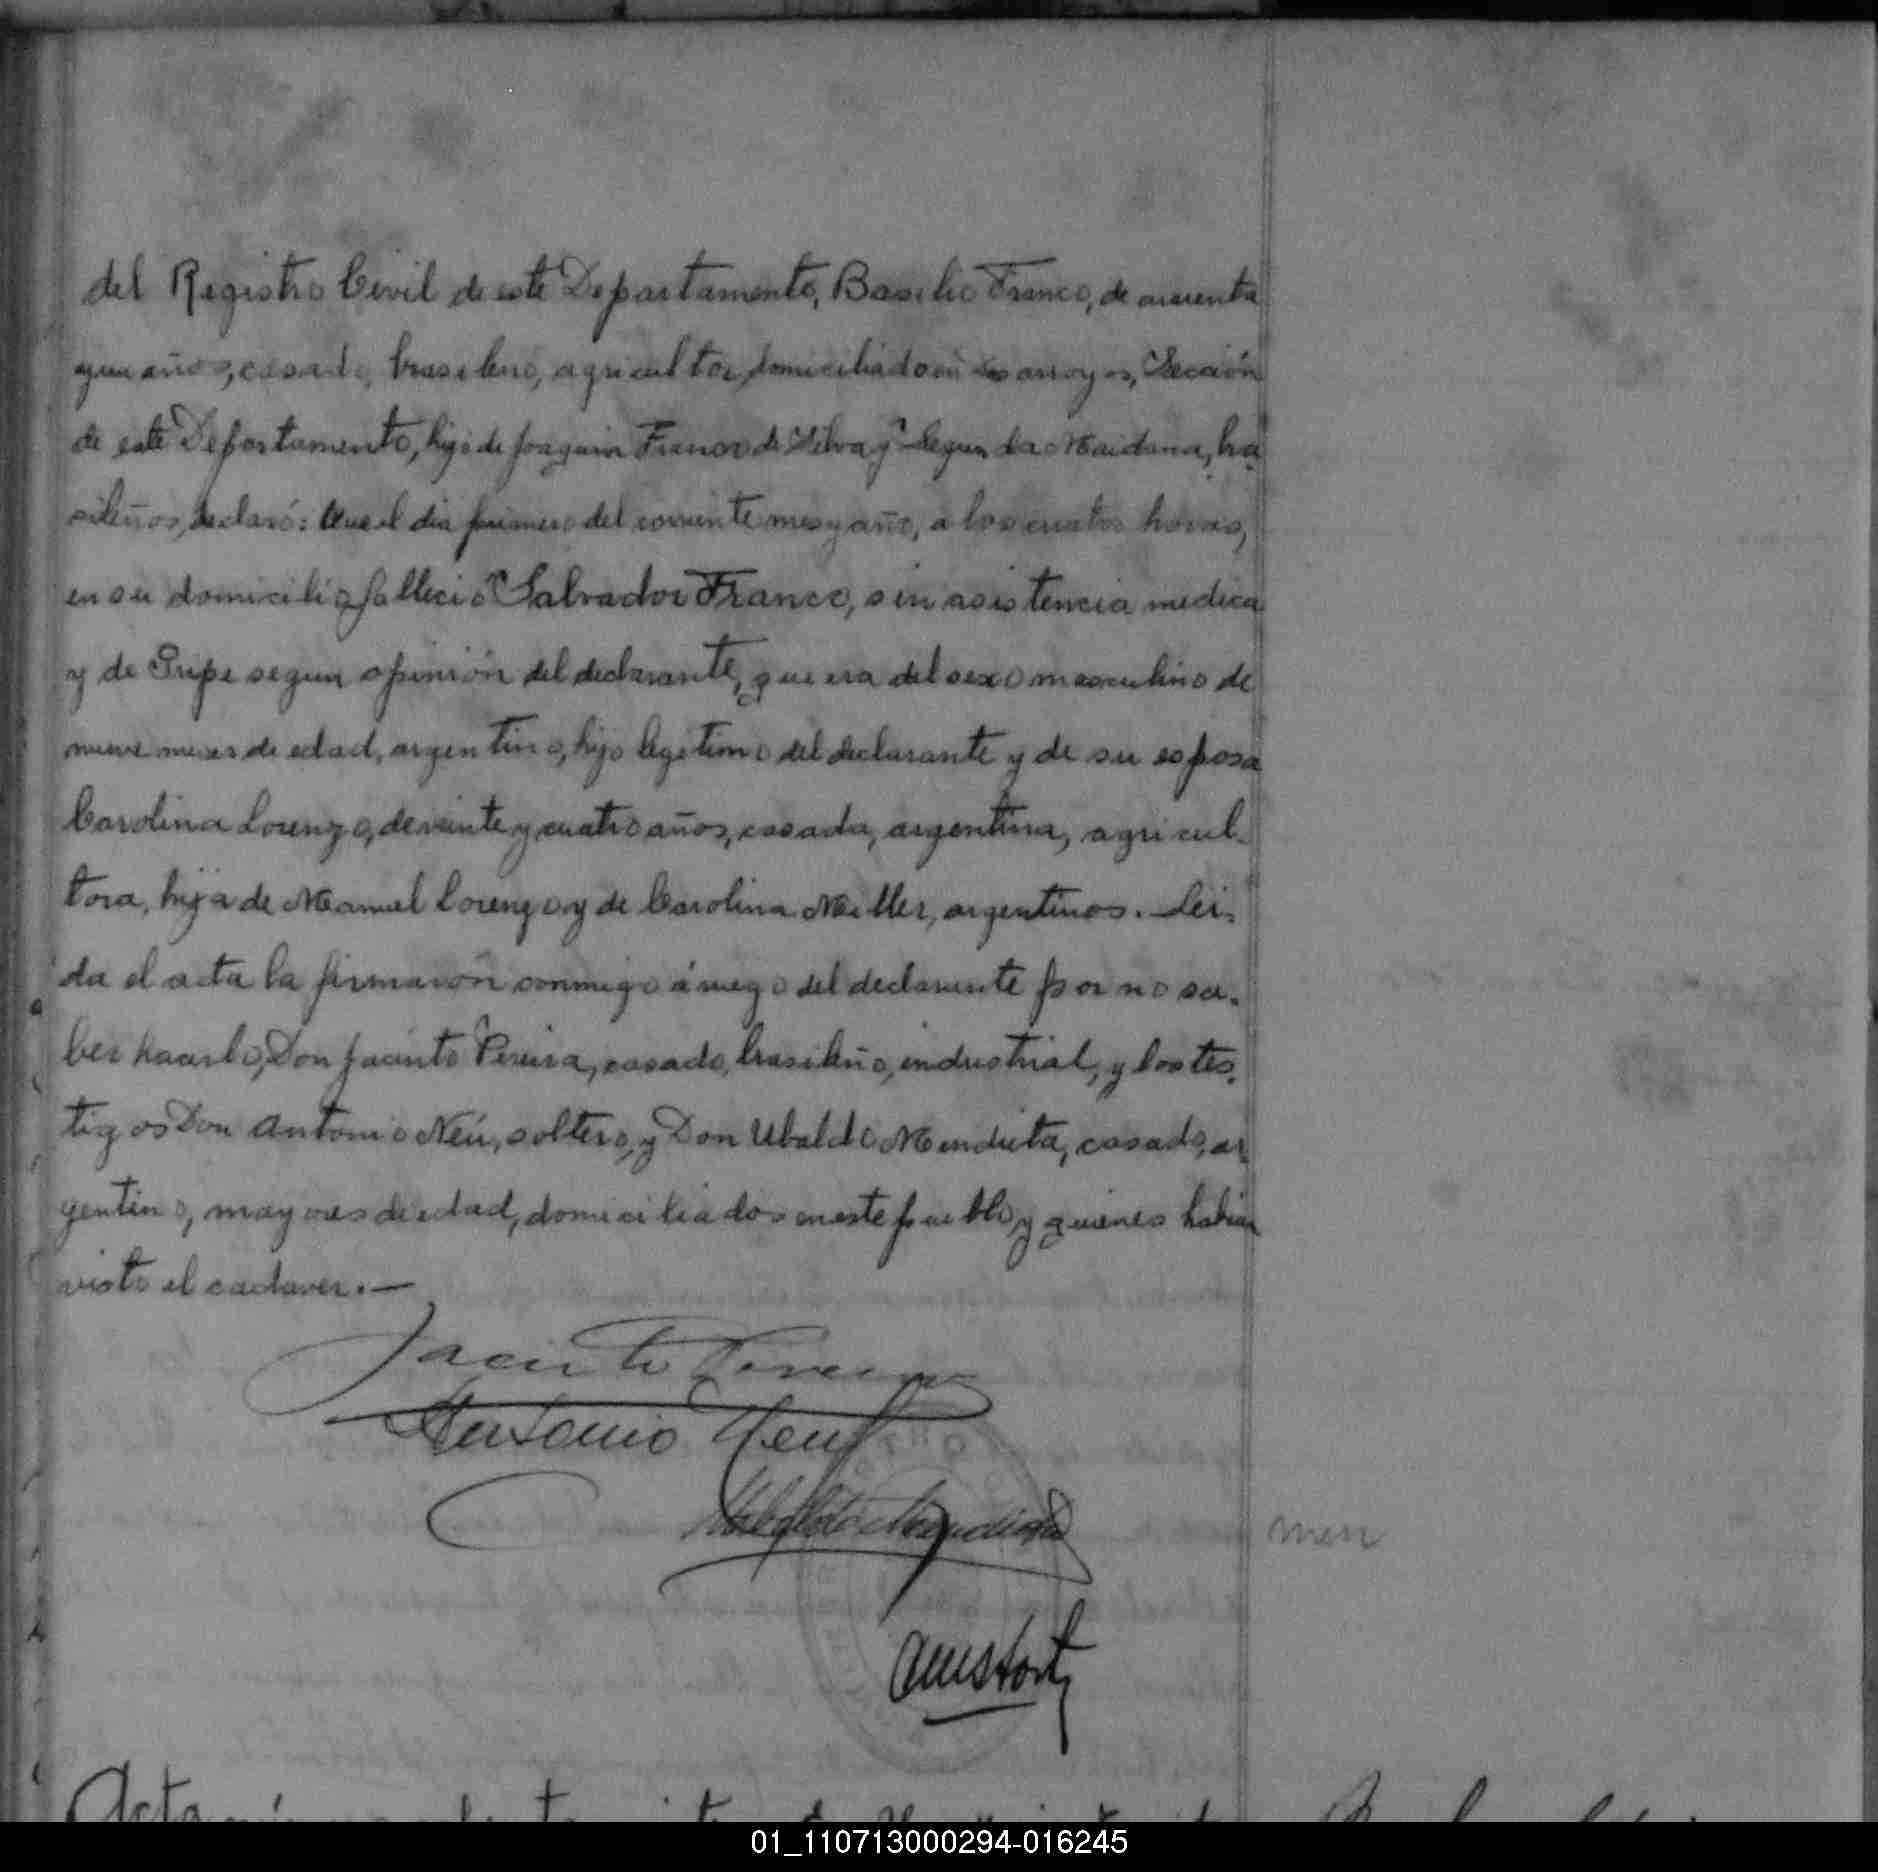 del Registro Civil de este Departamento, Basilio Franco, de cuarenta
y un años, casado, brasileño, agricultor, domiciliado en dos arroyos, Sección
de este Departamento, hijo de Joaquin Franco de Silva y Segunda Maidana, bra
sileños, declaró: Que el dia primero del corriente mes y año, a las cuatro horas,
en su domicilio falleció Salvador Franco, sin asistencia medica
y de Gripe segun opinión del declarante, que era del sexo masculino de
nueve meses de edad, argentino, hijo legitimo del declarante y de su esposa
Carolina Lorenzo, de veinte y cuatro años, casada, argentina, agricul-
tora, hija de Manuel Lorenzo y de Carolina Miller, argentinos. Lei-
da el acta la firmaron conmigo á ruego del declarante por no sa-
ber hacerlo, Don Jacinto Pereira, casado, brasileño, industrial, y los tes-
tigos Don Antonio Neú, soltero, y Don Ubaldo Mendieta, casado, ar
gentino, mayores de edad, domiciliados en este pueblo, y quienes habian
visto el cadaver.—
Jacinto Pereira
Antonio Neu
Ubaldo Mendieta
men
Acta
01_110713000294-016245